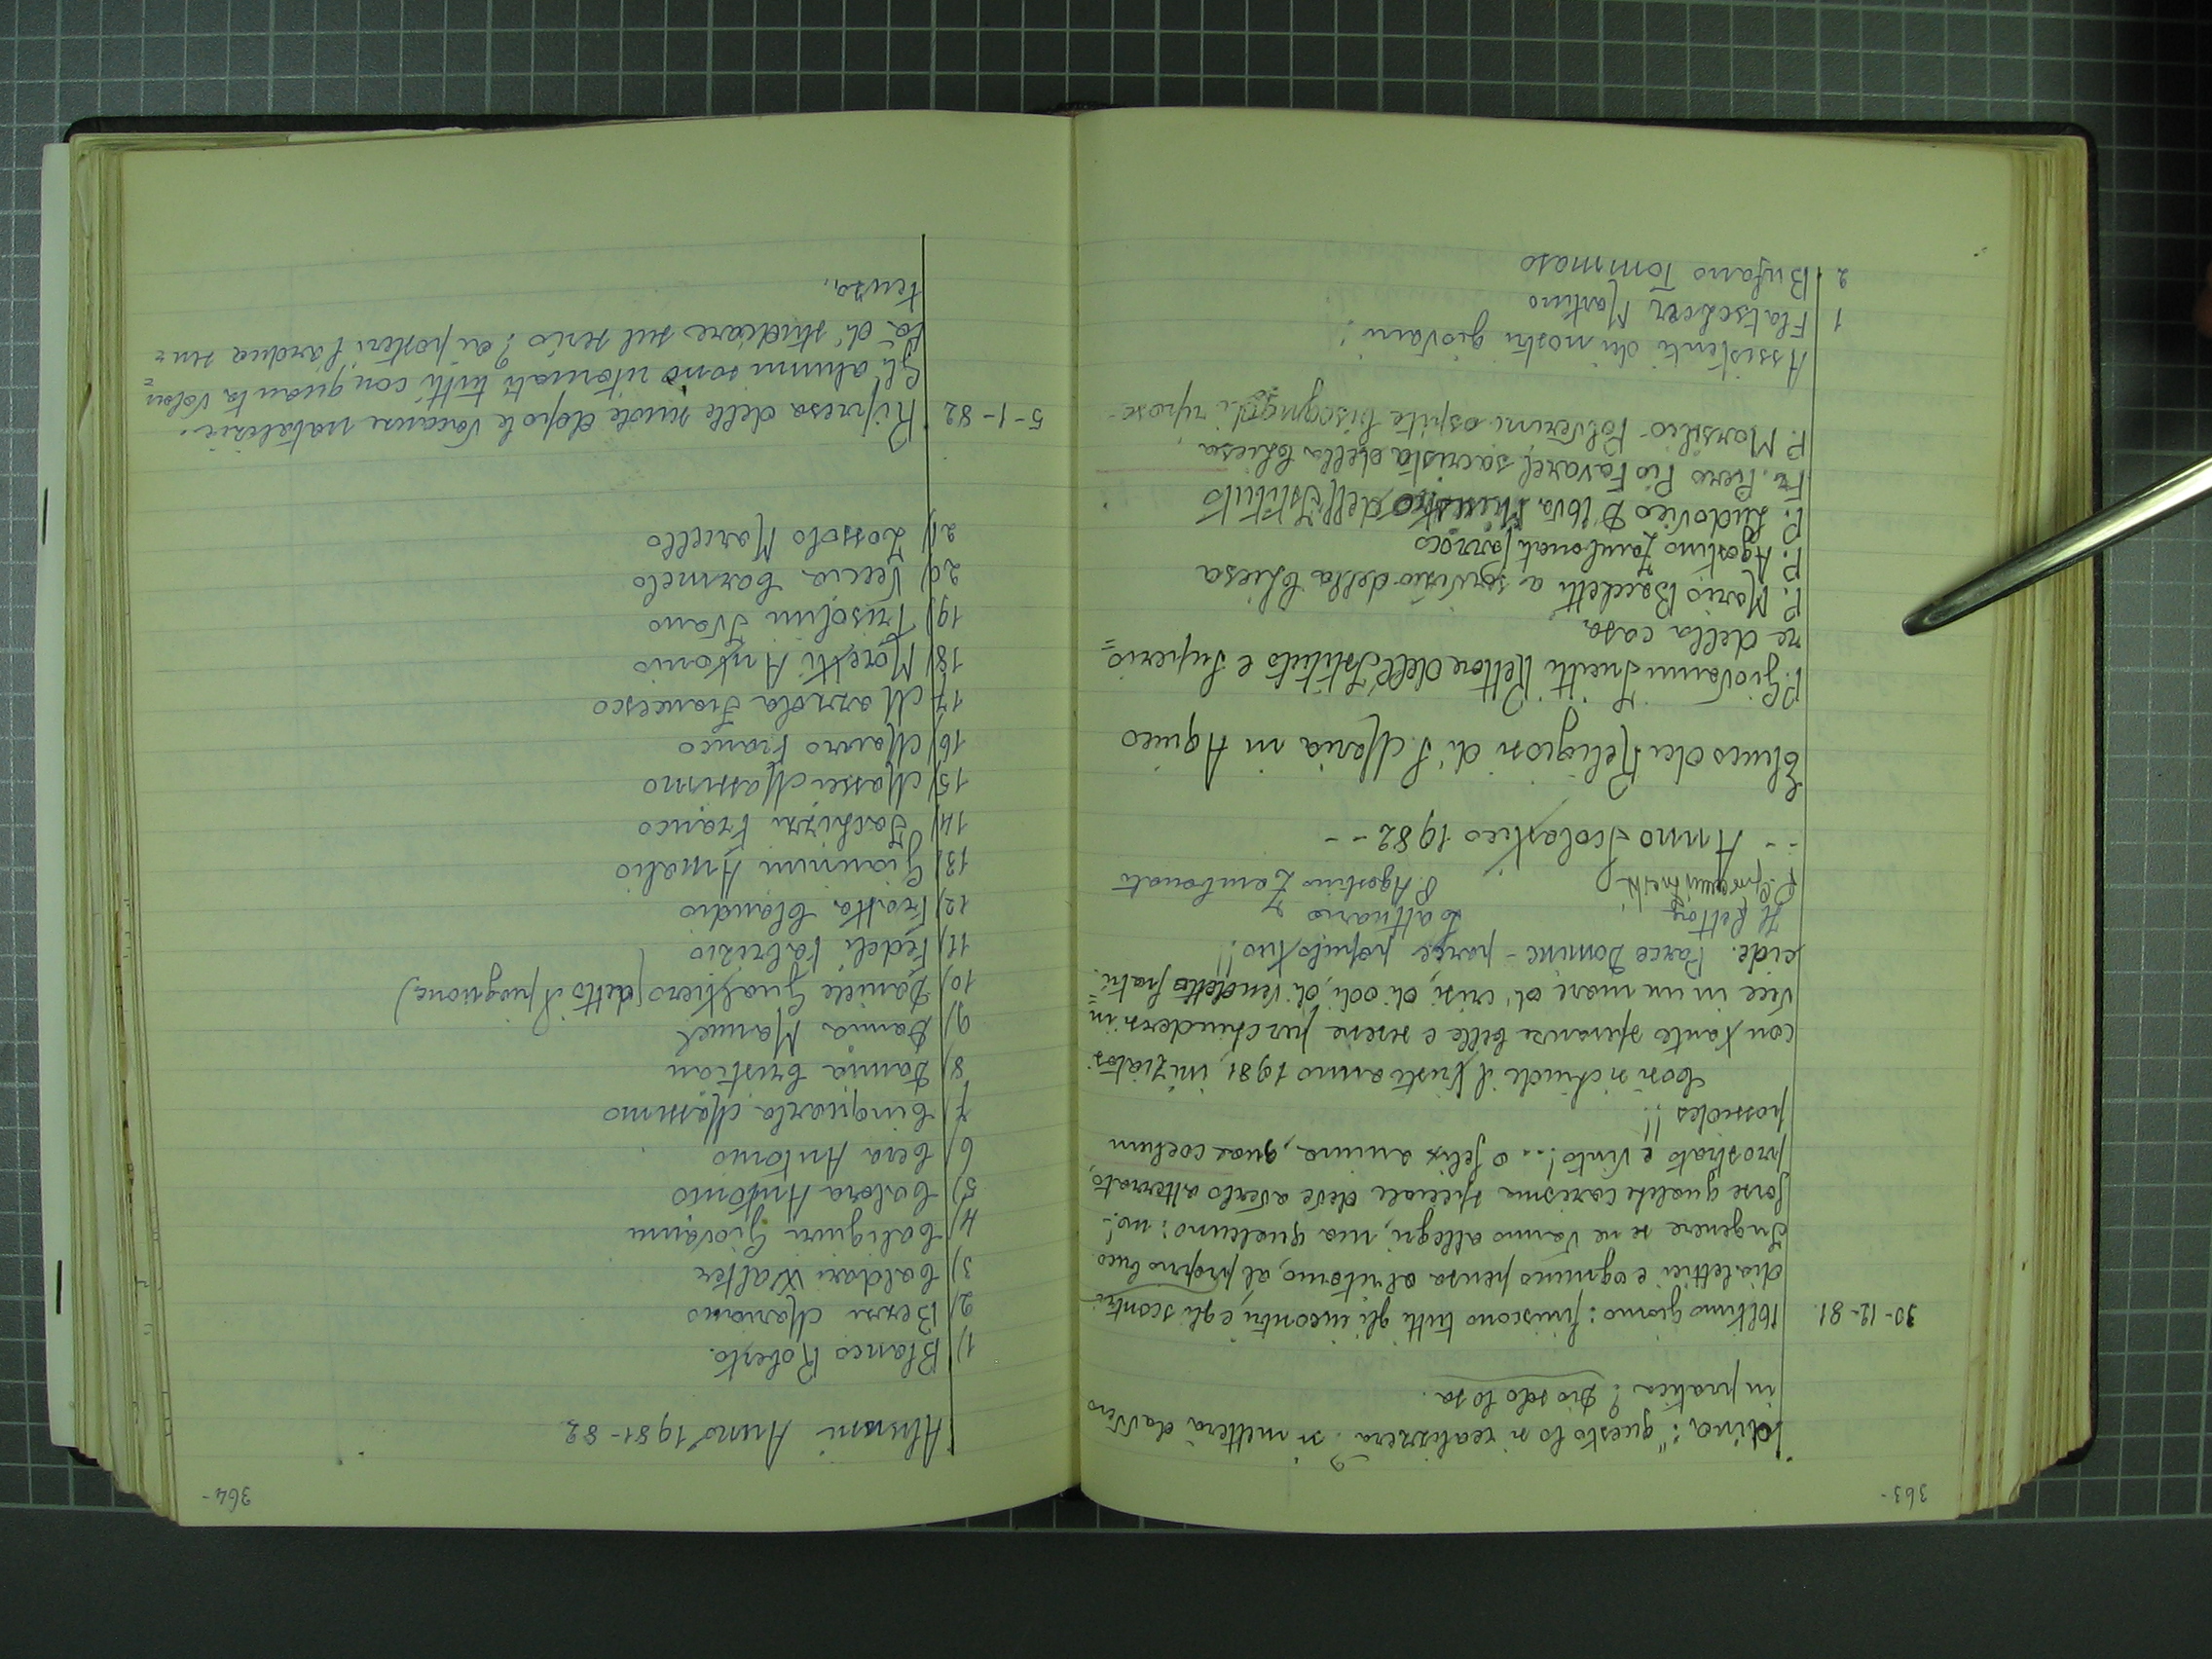 363-
dina: "questo lo si realizzerà, si metterà davvero
in pratica? Dio solo lo sa.
30-12-81. Ultimo giorno: finiscono tutti gli incontri, e gli scontri
dialettici e ognuno pensa al ritorno, al proprio buco
In genere se ne vanno allegri, ma qualcuno: no!
forse qualche carisma speciale deve averlo atterrato,
prostrato e vinto!... o felix anima, quae coelum
possides!!
Così si chiude il triste anno 1981, iniziatosi
con tante speranze belle e serene per chiudersi in=
vece in un mare di crisi, di odi, di vendette fratri=
cide. Parce Domine - parce populo tuo!!
Il Rettore L'attuario
P. Agostino Zambonati
-- Anno Scolastico 1982 --
Elenco dei Religiosi di S. Maria in Aquiro
P. Giovanni Rettore dell'Istituto e Superio=
re della casa
P. Mario Bacchetti a servizio della Chiesa
P. Agostino Zambonati parroco
P. Ludovico D'Uva, Ministro dell'Istituto
Fr. Piero Pio Favaref sacrista della Chiesa,
P. Marsilio Polverini ospite bisognoso di riposo-
Assistenti dei nostri giovani:
1 Flatscher Martino
2 Bufano Tommaso
364-
Alunni Anno 1981-82
1) Blanco Roberto.
2) Bersi Mariano
3) Caldari Walter
4) Caliguri Giovanni
5) Calora Antonio
6) Cera Antonio
7) Cinquarla Massimo
8) Damia Cristian
9) Damia Manuel
10) Daniele Gualtiero (detto il prognone)
11) Fedeli Fabrizio
12) Frotta Claudio
13) Giannini Amalio
14) Jachizzi Franco
15) Massei Massimo
16) Mauro Franco
17) Mazzola Francesco
18) Moretti Antonio
19) Trisolini Ivano
20) Veccia Carmelo
21) Zossolo Marcello
5-1-82 Ripresa delle scuole dopo le vacanze natalizie.
Gli alunni sono ritornati tutti con quanta volon=
tà di studiare sul serio? ai posteri l'ardua sen=
tenza.